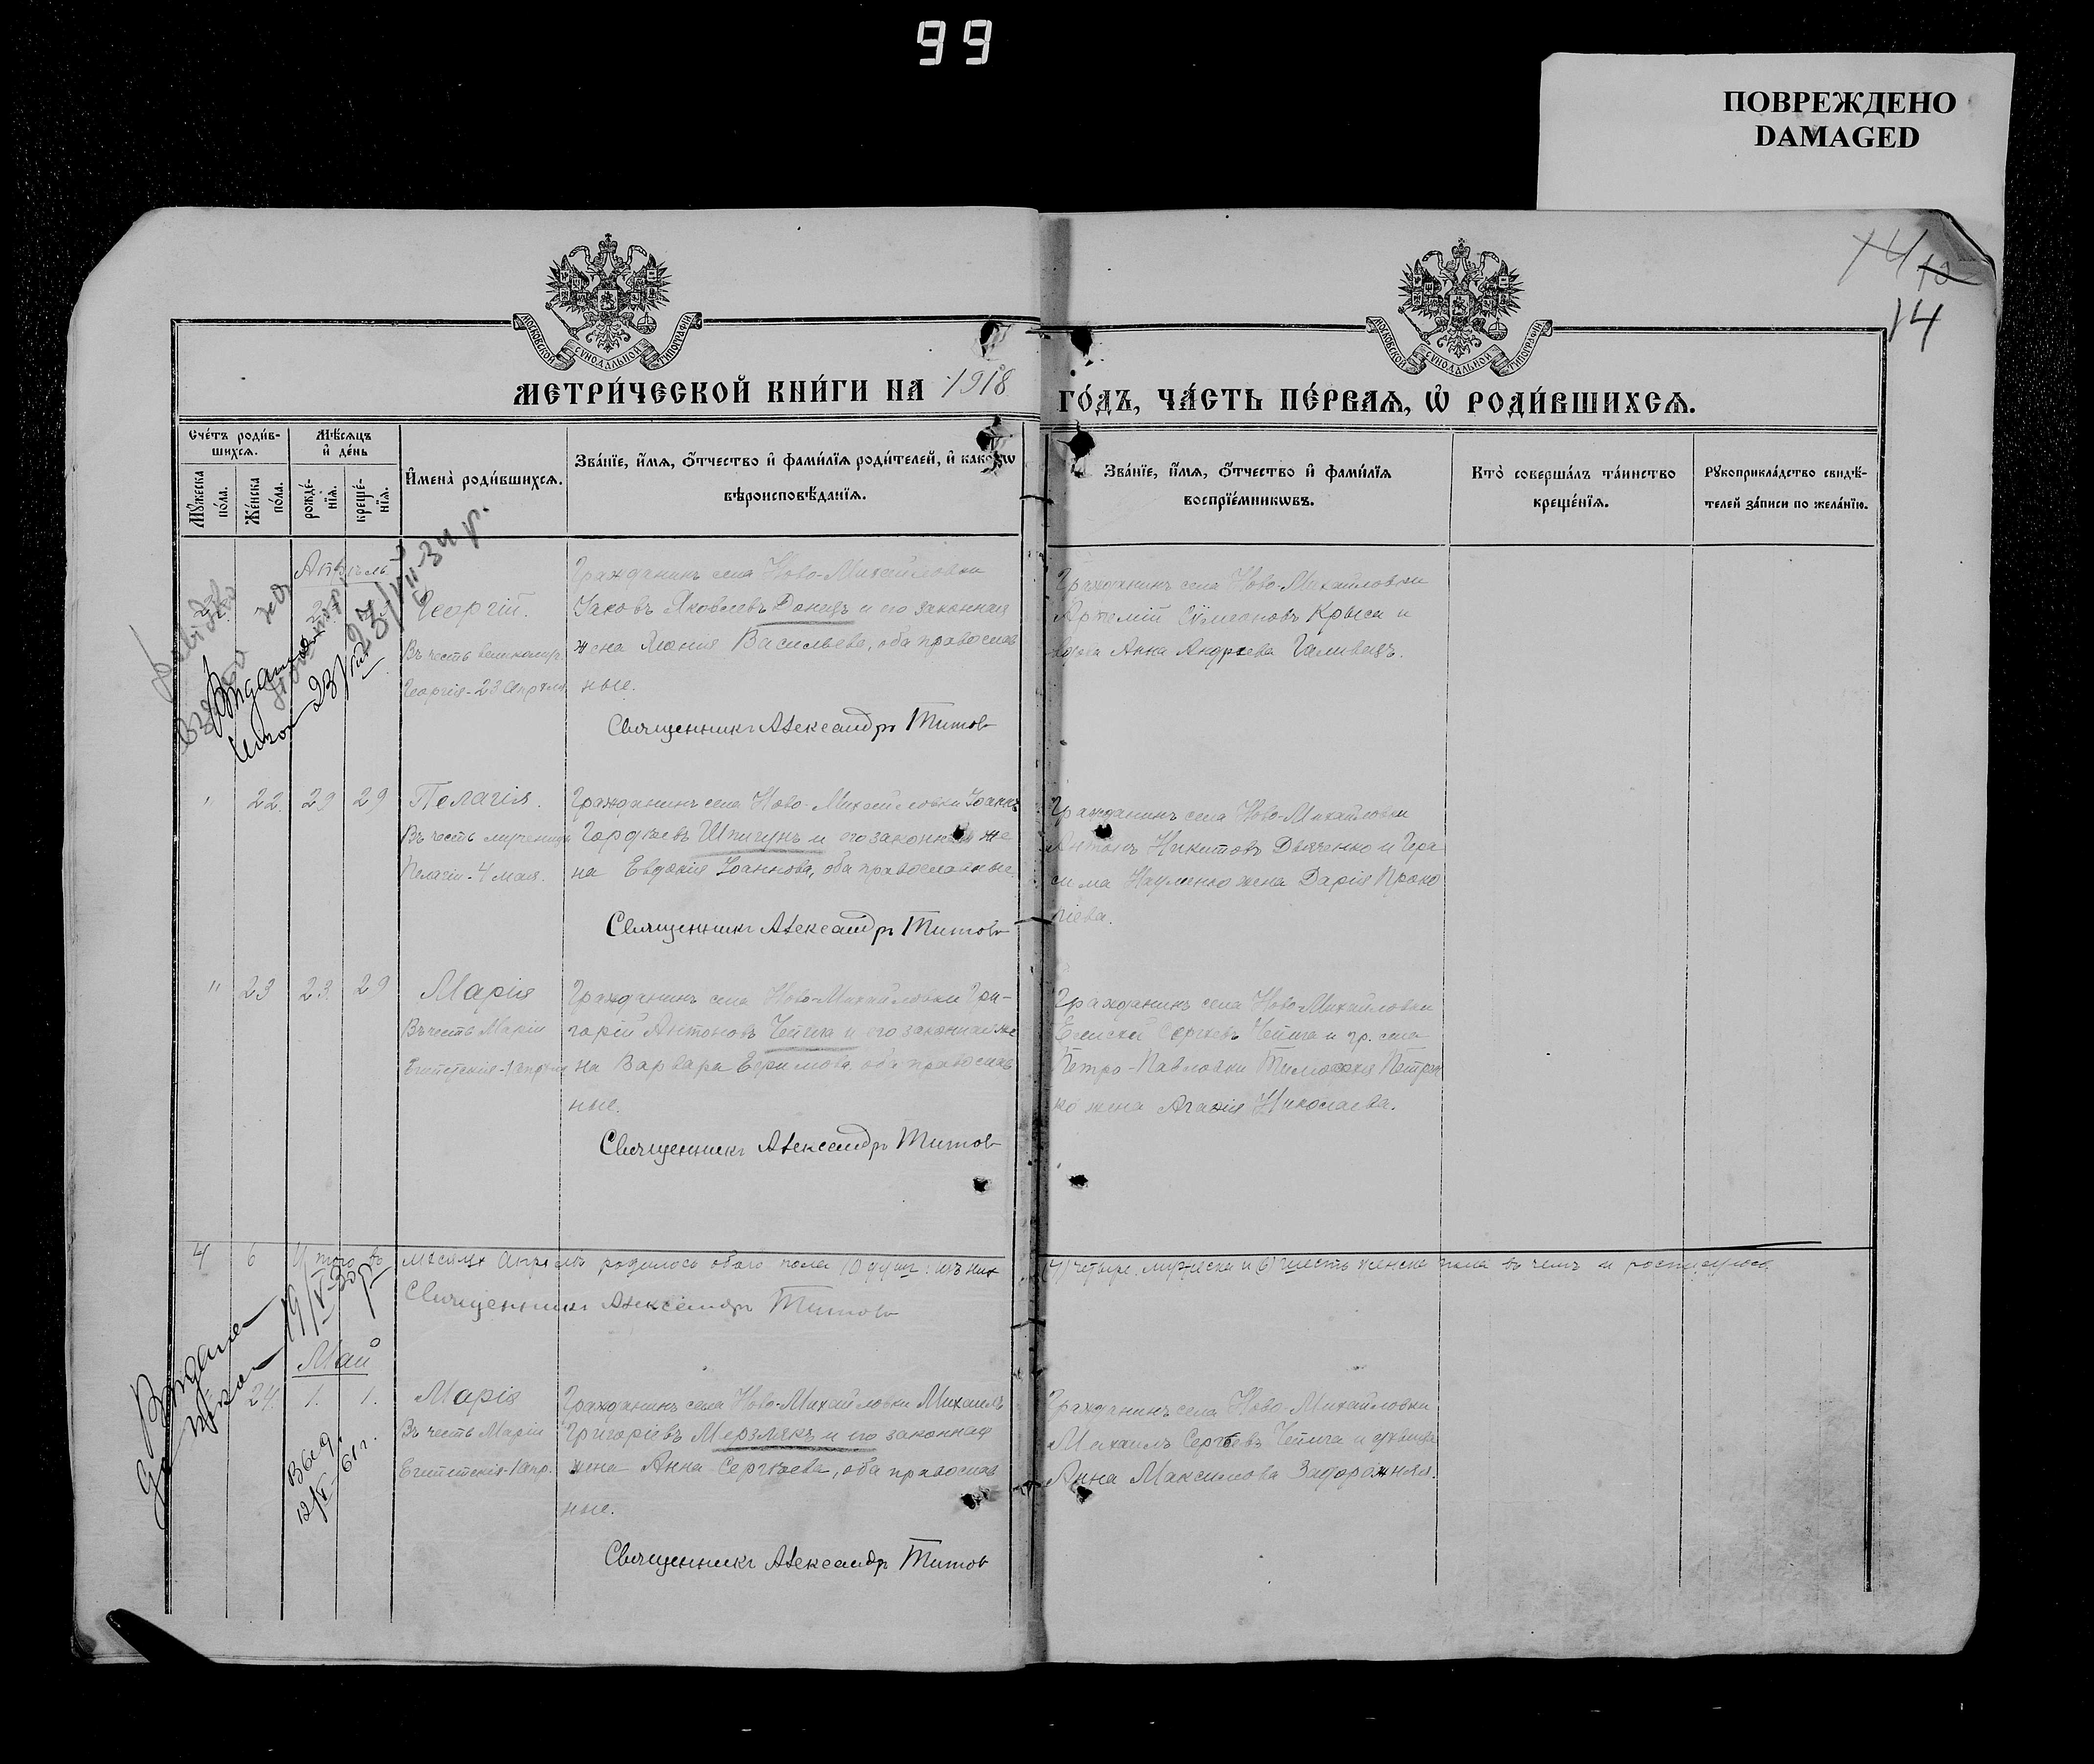 99
ПОВРЕЖДЕНО
DAMAGED
14
10
14
МОСКОВСКОЙ СѴНОДАЛЬНОЙ ТИПОГРАФІИ
МОСКОВСКОЙ СѴНОДАЛЬНОЙ ТИПОГРАФІИ
МЕТРИ́ЧЕСКОЙ КНИ́ГИ НА 1918
ГО́ДЪ, ЧА́СТЬ ПЕ́РВАѦ, Ѡ҆ РОДИ́ВШИХСѦ.
Сче́тъ роди́в-
шихсѧ.
Мѣ́сѧцъ
и҆ де́нь
Мꙋ́жеска
по́ла.
Же́нска
по́ла.
рожде́-
нїѧ.
креще́-
нїѧ.
И҆мена̀ роди́вшихсѧ.
Зва́нїе, и҆́мѧ, ѻ҆́тчество и҆ фами́лїѧ роди́телей, и҆ како́гѡ
вѣроисповѣ́данїѧ.
Зва́нїе, и҆́мѧ, ѻ҆́тчество и҆ фами́лїѧ
воспрїе́мникѡвъ.
Кто̀ соверша́лъ та́инство
креще́нїѧ.
Рꙋкоприкла́дство свидѣ́-
телей за́писи по жела́нїю.
Апрѣль
Георгій.
Въ честь великомуч.
Георгія - 23 Апрѣля
Гражданинъ села Ново-Михайловки
Іаковъ Яковлевъ Донецъ и его законная
жена Васильева, оба православ
ные.
Священникъ Александръ Титовъ
Гражданинъ села Ново-Михайловки
Артемій Сѵмеоновъ Крыса и
вдова Анна Андреева
" 22. 29 29
Пелагія.
Въ честь мученицы
Пелагіи - 4 мая.
Гражданинъ села Ново-Михайловки Іоаннъ
Гордѣевъ Шпигунъ и его законная же
на Евдокія Іоаннова, оба православные.
Священникъ Александръ Титовъ
Гражданинъ села Ново-Михайловки
Антонъ Никитовъ Дьяченко и Гера
сима Науменко жена Дарія Проко
піева.
" 23 23. 29
Марія
Въ честь Маріи
Египетскія - 1 апрѣля
Гражданинъ села Ново-Михайловки Гри-
горій Антоновъ Чепига и его законная же
на Варвара Ефимова, оба православ
ные.
Священникъ Александръ Титовъ
Гражданинъ села Ново-Михайловки
Елисей Сергѣевъ Чепига и гр. села
Петро-Павловки Петрен
ко жена Агафія Николаева.
4 6 Итого въ мѣсяцѣ Апрѣлѣ родилось обоего пола 10 душъ: изъ нихъ
(4) четыре мужеска и (6) шесть женска пола въ чемъ и росписуюсь.
Священникъ Александръ Титовъ
19/V-30 р
Май
" 24. 1. 1.
Марія
Въ честь Маріи
Египетскія - 1 апр.
Гражданинъ села Ново-Михайловки Михаилъ
Григоріевъ Мерзлякъ и его законная
жена Анна Сергѣева, оба православ
ные.
Священникъ Александръ Титовъ
Гражданинъ села Ново-Михайловки
Михаилъ Сергѣевъ Чепига и дѣвица
Анна Максимова Задорожняя.